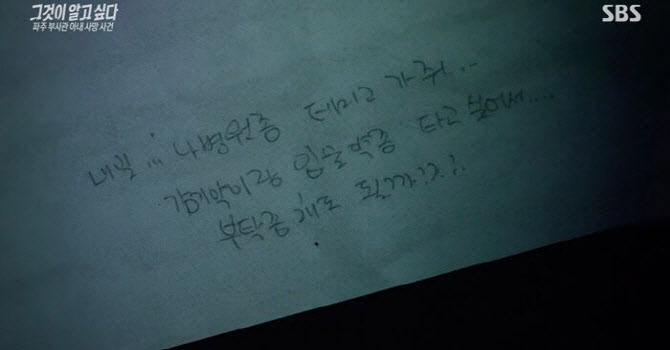 그것이 알고싶다
파주 부사관 아내 사망 사건
SBS
내일... 나 병원좀 데리고 가줘...
감기약이랑 입술약좀 타고 싶어서....
부탁좀 해도 될까?.?.